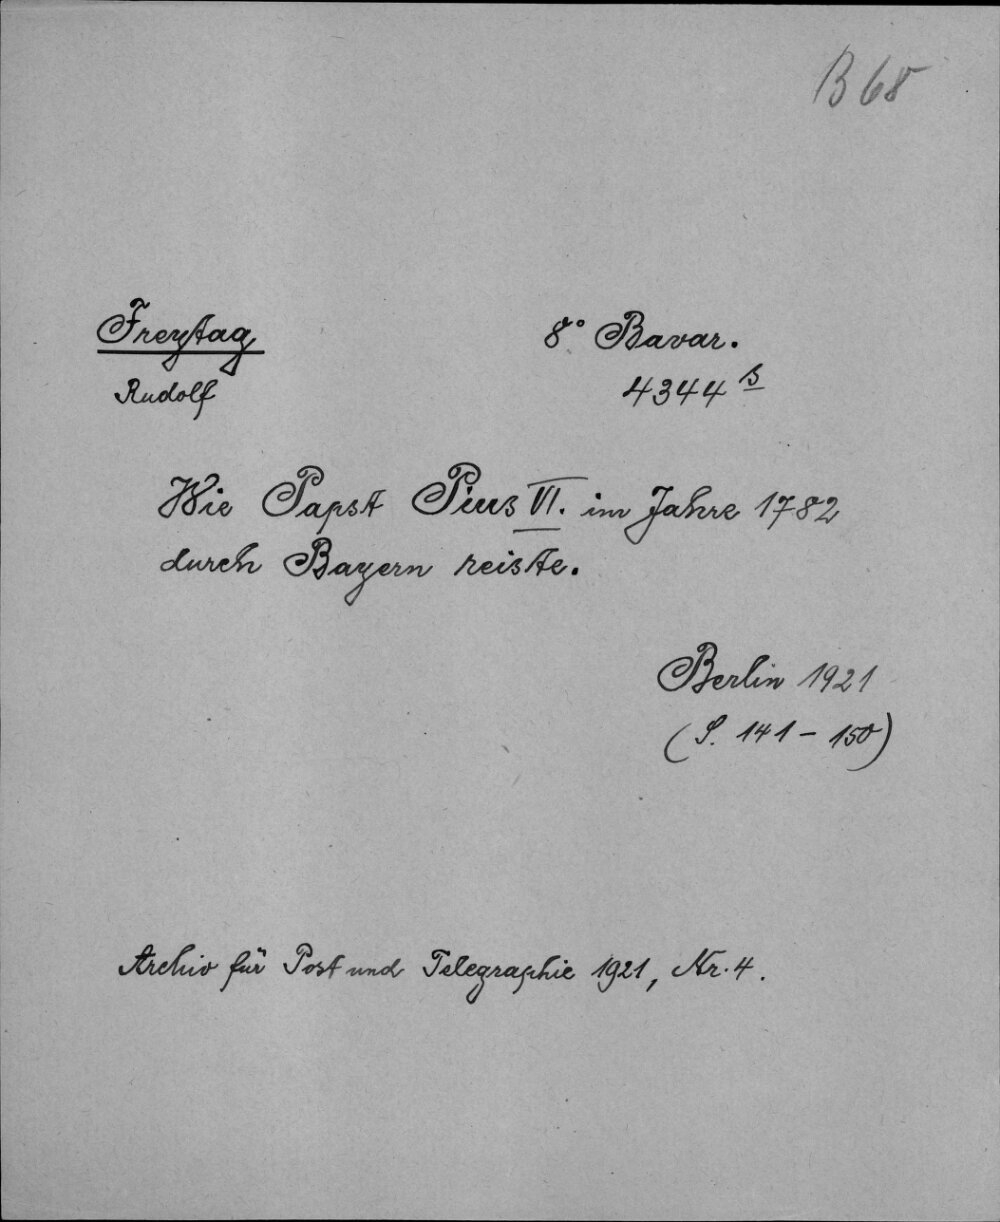 B 68
Freytag
Rudolf
8° Bavar.
4344 s
Wie Papst Pius VI. im Jahre 1782
durch Bayern reiste.
Berlin 1921
(S. 141 – 150)
Archiv für Post und Telegraphie 1921, Nr. 4.